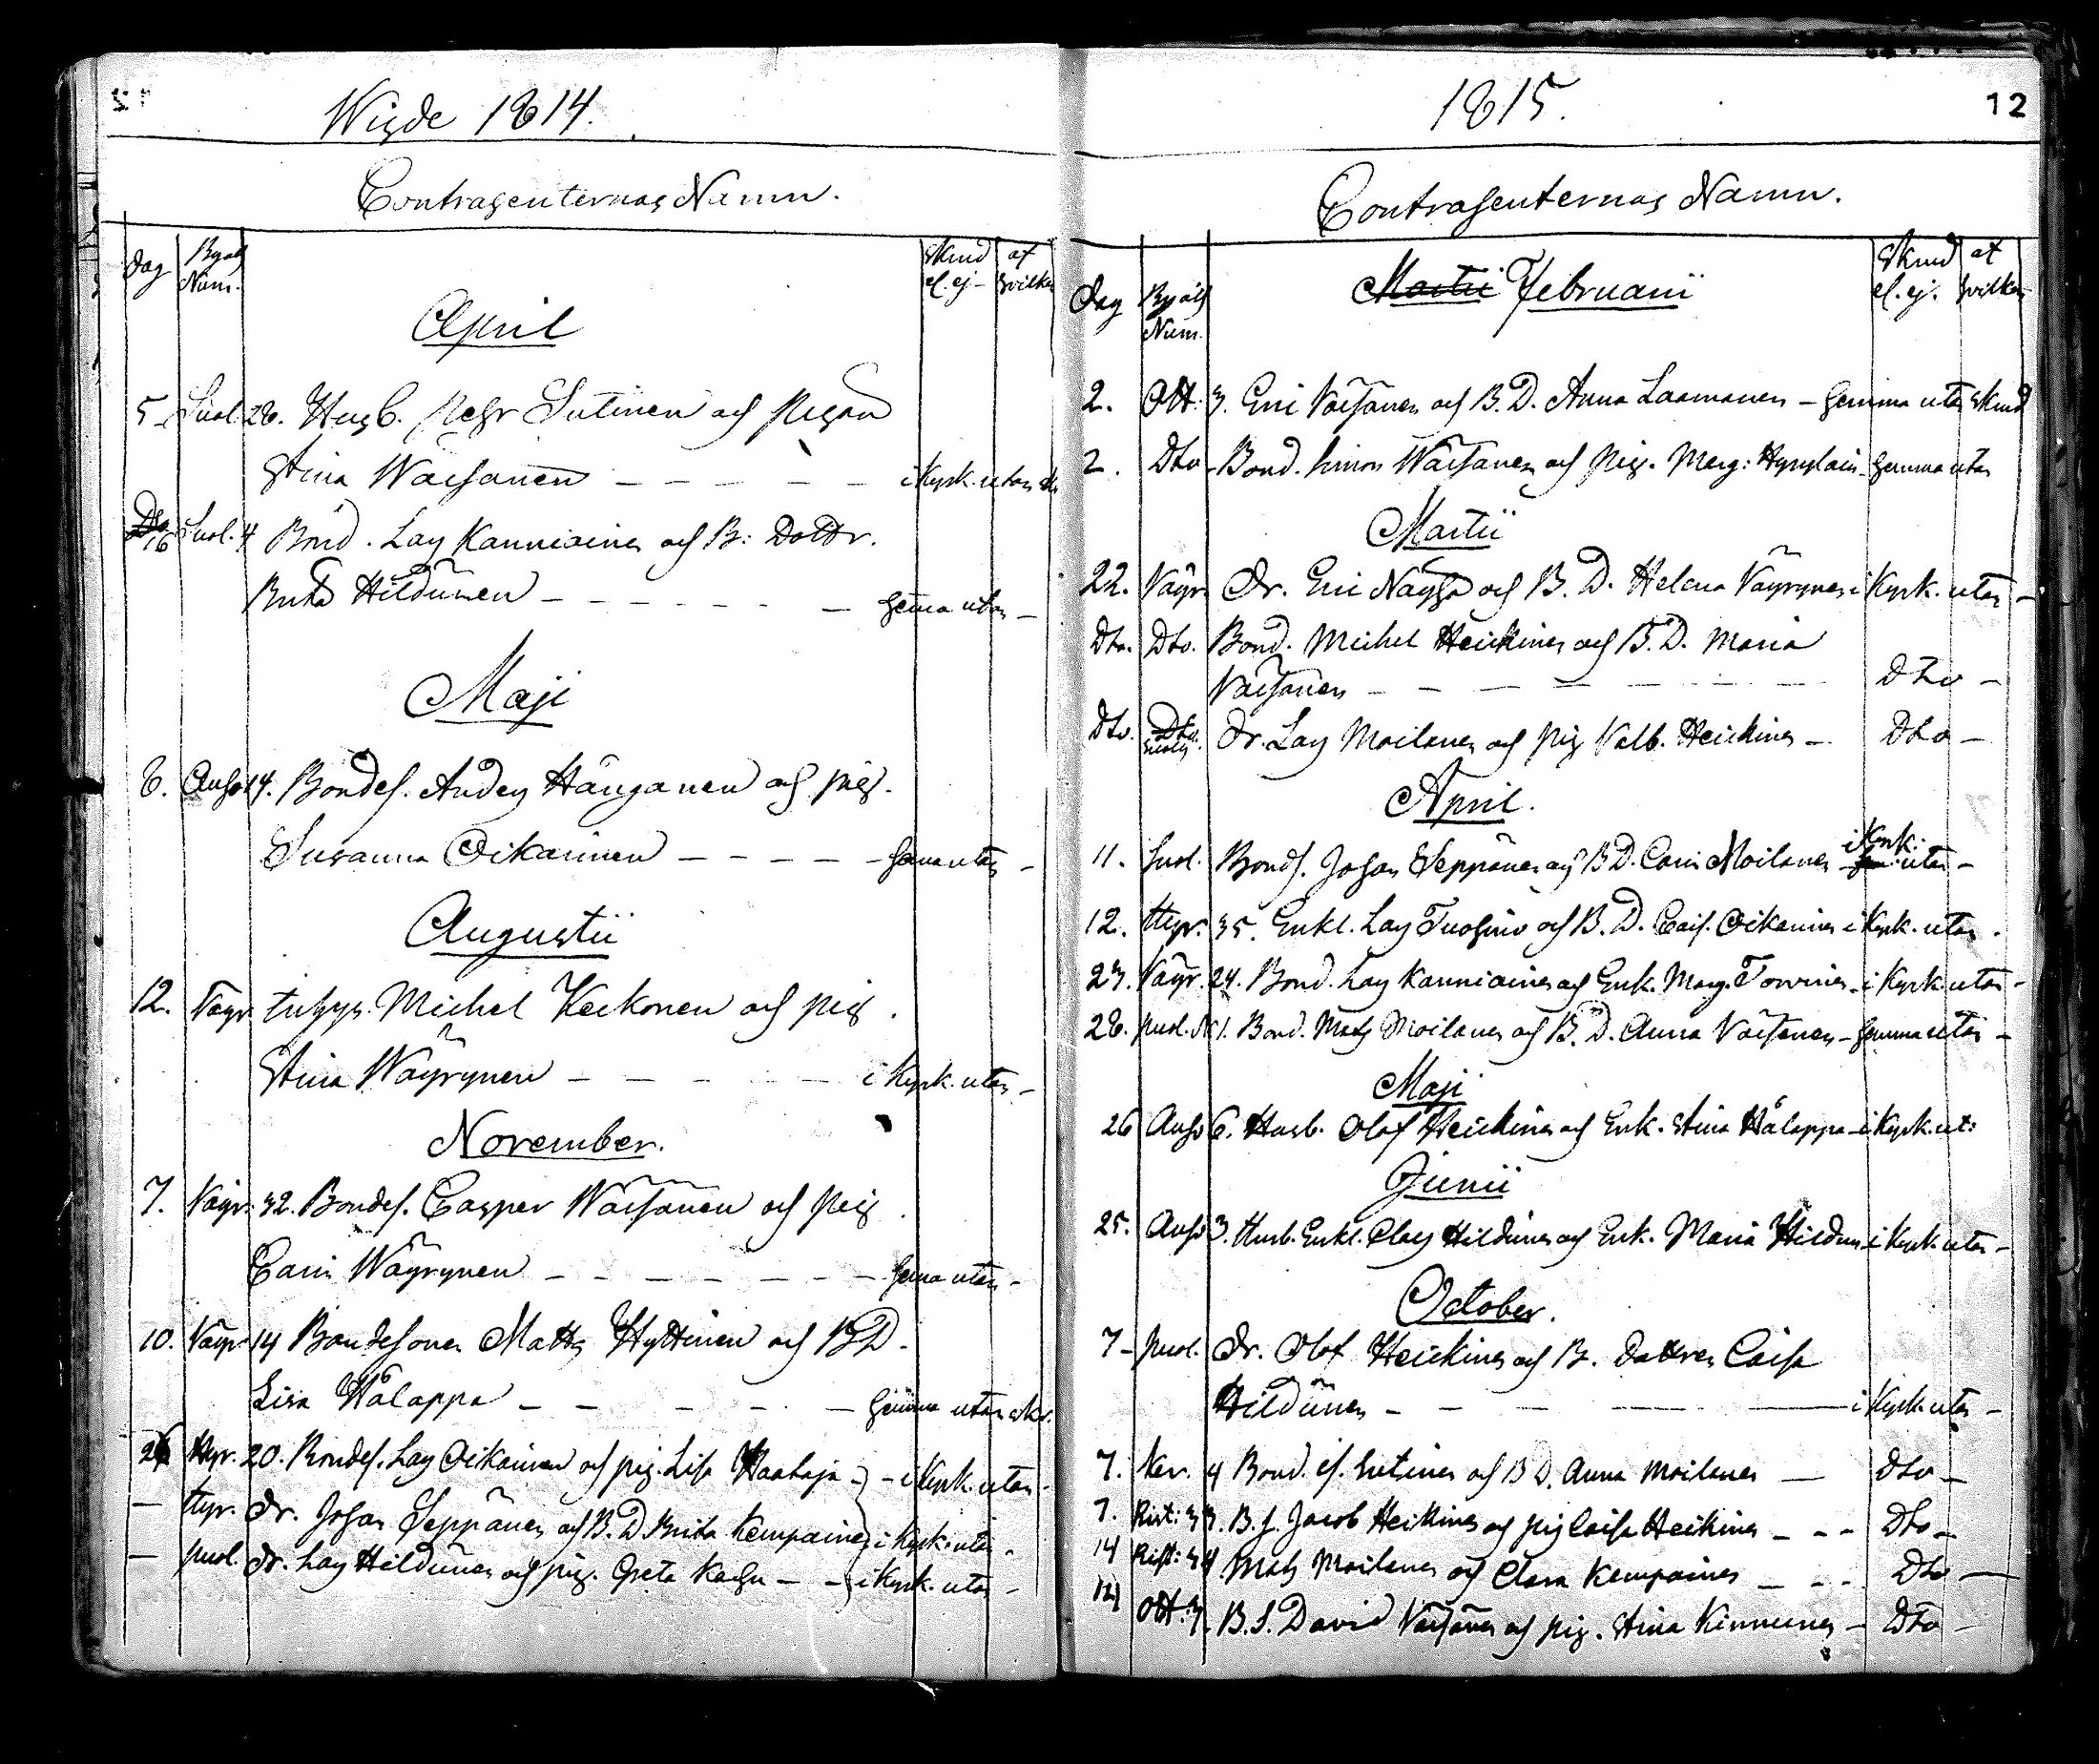 Wigde 1814.
Contragenternas Namn.
Dag Byals Num. Skud el. ej - af hvilken
April
5. Suol. 28. Husb. Pehr Sutinen och Pigan
Stina Wäisänen - - - - - i Kyrk. utan sk.
16 Suol. 4 Bond. Lars Kanniainen och B: Dottr.
Brita Hildunen - - - - - - hemma utan -
Maji
6. Anho 14. Bondes. Anders Hänganen och pig.
Susanna Oikarinen - - - - - hemma utan -
Augustii
12. Väyr. Michel Keckonen och pig.
Stina Wäyrynen - - - - - i Kyrk. utan -
November.
7. Väyr. 32. Bondes. Casper Wäisänen och pig.
Carin Wäyrynen - - - - - - - hemma utan -
10. Väyr. 14 Bondesonen Matts Hyttinen och BD.
Lisa Hålappa - - - - - hemma utan skr.
26 Hyr. 20. Bondes. Lars Oikarinen och pig. Lisa Haataja - - i Kyrk. utan -
- Hyr. Dr. Johan Seppänen och B. D. Brita Kempainen i Kyrk. utan -
- puol. Dr. Lars Hildunen och pig. Greta Karhu - - i Kyrk. utan -
1815.
12
Contragenternas Namn.
Dag Byals Num. Skud el. ej. af hvilken
Martii Februarii
2. Ott: 3. Eric Väisänen och B. D. Anna Laamanen - hemma utan skud
2. Dto - Bond. Simon Wäisänen och Pig. Marg: - hemma utan
Martii
22. Väyr. Dr. Eric och B. D. Helena Väyrynen i Kyrk. utan -
Dto. Dto. Bond. Michel Heickinen och B. D. Maria
Väisänen - - - - - - - Dto -
Dto. Dto. Dr. Lars Moilanen och pig Valb. Heickinen - Dto -
April.
11. Suol. Bonds. Johan Seppänen och B D. Carin Moilanen - i Kyrk. utan -
12. Hyr. 35. Enkl. Lars Tuohino och B. D. Cais. Oikarinen i Kyrk. utan.
23. Väyr. 24. Bond. Lars Kanniainen och Enk. Marg. Torvinen - i Kyrk utan -
28. puol. N 1. Bond. Mats Moilanen och B. D. Anna Väisänen - hemma utan -
Maji
26 Anho 6. Husb. Olof Heickinen och Enk. Stina Hålappa - i Kyrk. ut:
Junii
25. Anho 3. Husb. Enkl. Clas Hildunen och Enk. Maria Hildun - i Kyrk. utan -
October.
7 - puol. Dr. Olof Heickinen och B. Dottren Caisa
Hildunen - - - - - i Kyrk. utan -
7. Ner. 4 Bond. S. Sutinen och B D. Anna Moilanen - Dto -
7. Rist: 33. B. S. Jacob Heickinen och pig Caisa Heickinen - - - Dto -
14 Rist: 34 Mats Moilanen och Clara Kempainen - - - Dto -
14 Ott: 3. B. S. David Väisänen och pig. Stina Kinnunen - Dto -